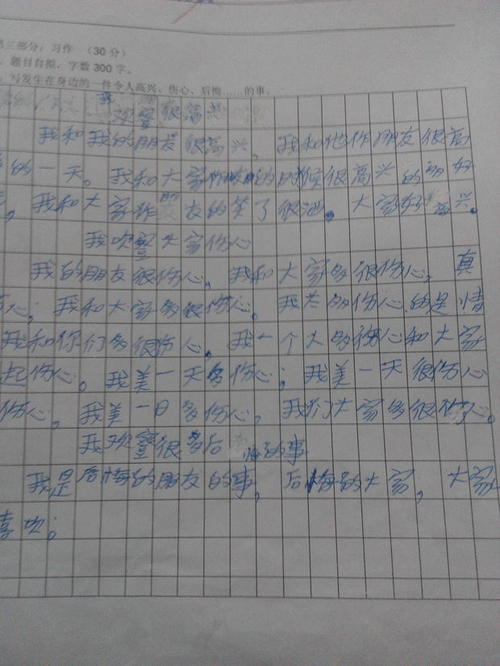 第三部分：习作 （30分）
题目自拟，字数300字。
写发生在身边的一件令人高兴、伤心、后悔……的事。
我欢登很高兴
我和我的朋友很高兴，我和他作朋友很高
的一天。我和大家作的时候很高兴的朋好
我和大家作朋友的笑了很池。大家好高兴。
我欢登大家伤心
我的朋友很伤心，我和大家多很伤心，真
心；我和大家多很伤心。我为多伤心的是情
我和你们多很伤心。我一个大多伤心和大家
起伤心。我美一天多伤心；我美一天很伤心
伤心，我美一日多伤心，我们大家多很伤心。
我欢登很多后悔的事
我是后悔的朋友的事，后悔的大家，大家
喜欢；